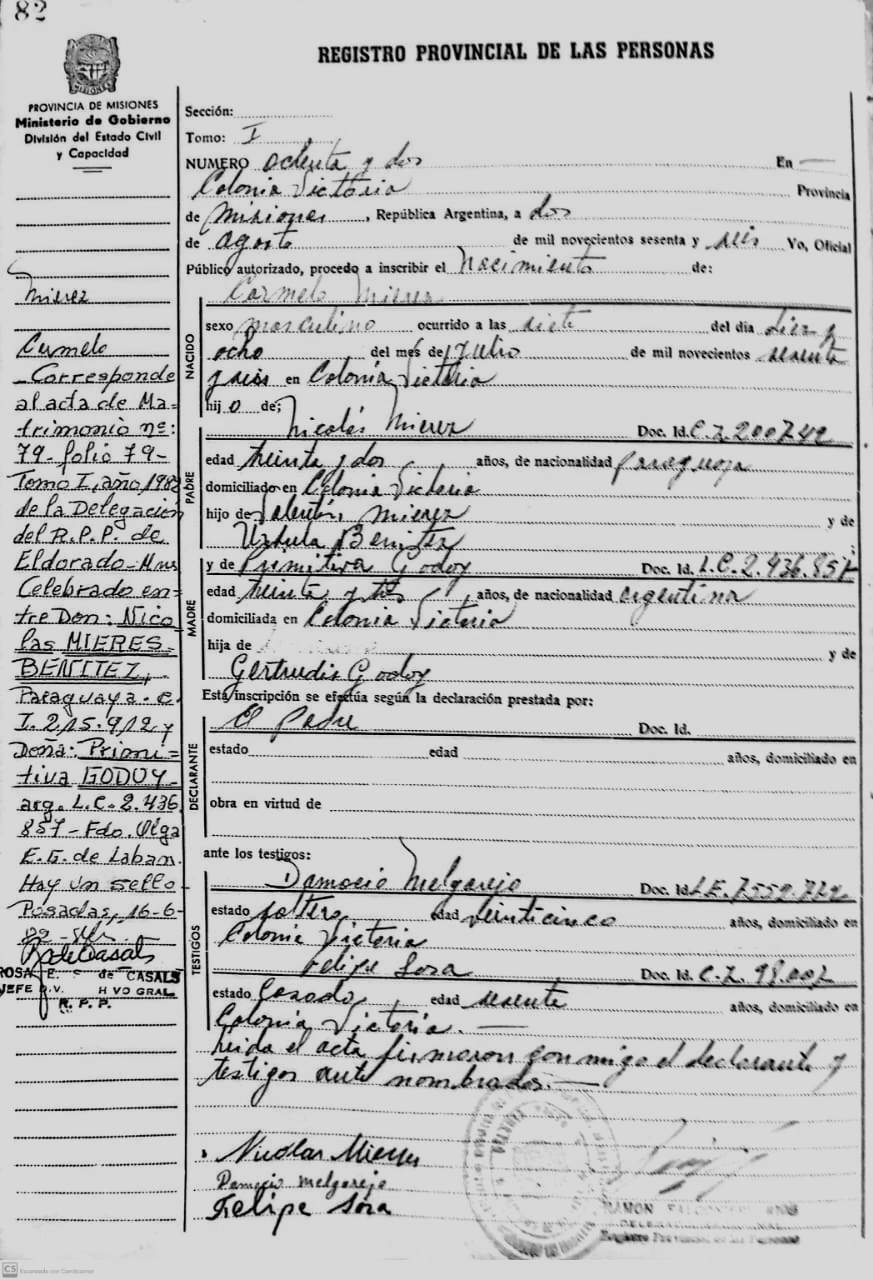 82
REGISTRO PROVINCIAL DE LAS PERSONAS
PROVINCIA DE MISIONES
Ministerio de Gobierno
División del Estado Civil
y Capacidad
Mierez
Carmelo
Corresponde
al acta de Ma-
trimonio nº:
79-folio 79-
Tomo I, año 198
de la Delegación
del R.P.P. de
Eldorado-Mns
Celebrado en-
tre Don: Nico
las MIERES
BENITEZ,
Paraguaya. C.
I. 215.912 y
Doña: Primi-
tiva GODOY-
arg. L.C. 2.436.
857- Fdo. Olga
E. G. de Laban.
Hay un sello-
Posadas, 16-6-
de CASALS
JEFE DIV. GRAL.
R. P. P.
Sección:
Tomo: I
NUMERO ochenta y dos En —
Colonia Victoria Provincia
de Misiones, República Argentina, a dos
de agosto de mil novecientos sesenta y seis Yo, Oficial
Público autorizado, procedo a inscribir el Nacimiento de:
NACIDO
Carmelo Mierez
sexo masculino ocurrido a las siete del día diez y
ocho del més de Julio de mil novecientos sesenta
y seis en Colonia Victoria
hij o de;
PADRE
Nicolás Mierez Doc. Id. C.I. 200742
edad treinta y dos años, de nacionalidad paraguaya
domiciliado en Colonia Victoria
hijo de Valentín Mierez y de
Ursula Benitez
MADRE
y de Primitiva Godoy Doc. Id. L.C. 2.436.857
edad treinta y tres años, de nacionalidad argentina
domiciliada en Colonia Victoria
hija de y de
Gertrudis Godoy
Esta inscripción se efectúa según la declaración prestada por:
DECLARANTE
El padre Doc. Id.
estado edad años, domiciliado en
obra en virtud de
ante los testigos:
TESTIGOS
Damacio Melgarejo Doc. Id. L.E. 7552.722
estado soltero edad veinticinco años, domiciliado en
Colonia Victoria
Felipe Sosa Doc. Id. C.I. 98.002
estado Casado edad sesenta años, domiciliado en
Colonia Victoria. —
Leida el acta firmaron conmigo el declarante y
testigos ante nombrados. —
Nicolas Mieres
Damacio Melgarejo
Felipe Sosa
RAMON RIOS
Registro Provincial de las Personas
CS Escaneado con CamScanner